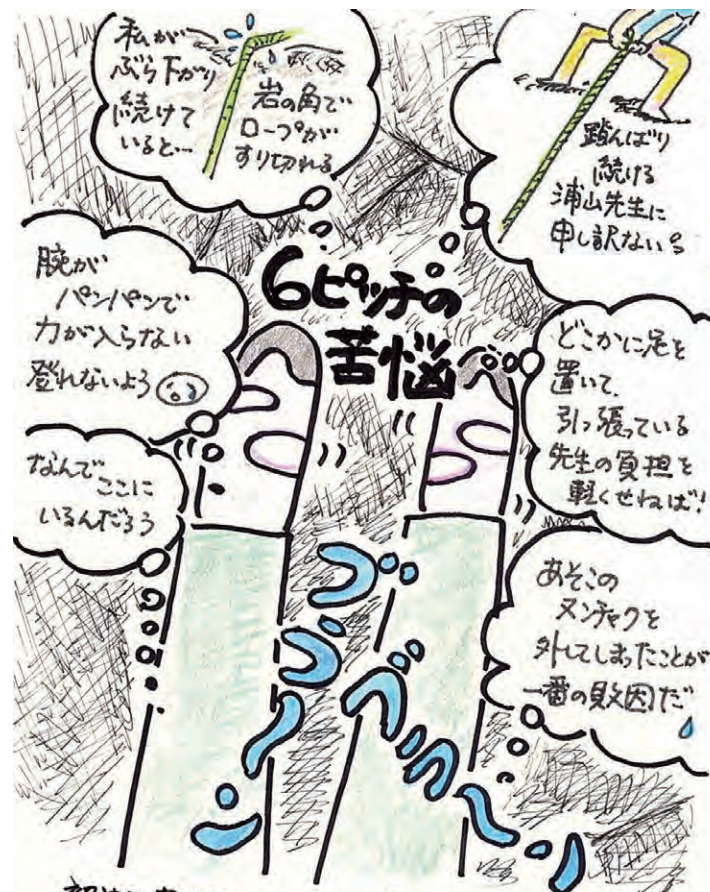 私が
ぶら下がり
続けて
いると…
岩の角で
ロープが
すり切れる
踏んばり
続ける
浦山先生に
申し訳ない
6ピッチの
苦悩
腕が
パンパンで
力が入らない
登れないよう
どこかに足を
置いて、
引っ張っている
先生の負担を
軽くせねば!
なんで
ここに
いるんだろう
あそこの
ヌンチャクを
外してしまったことが
一番の敗因だ
ブラーン
ブラーン